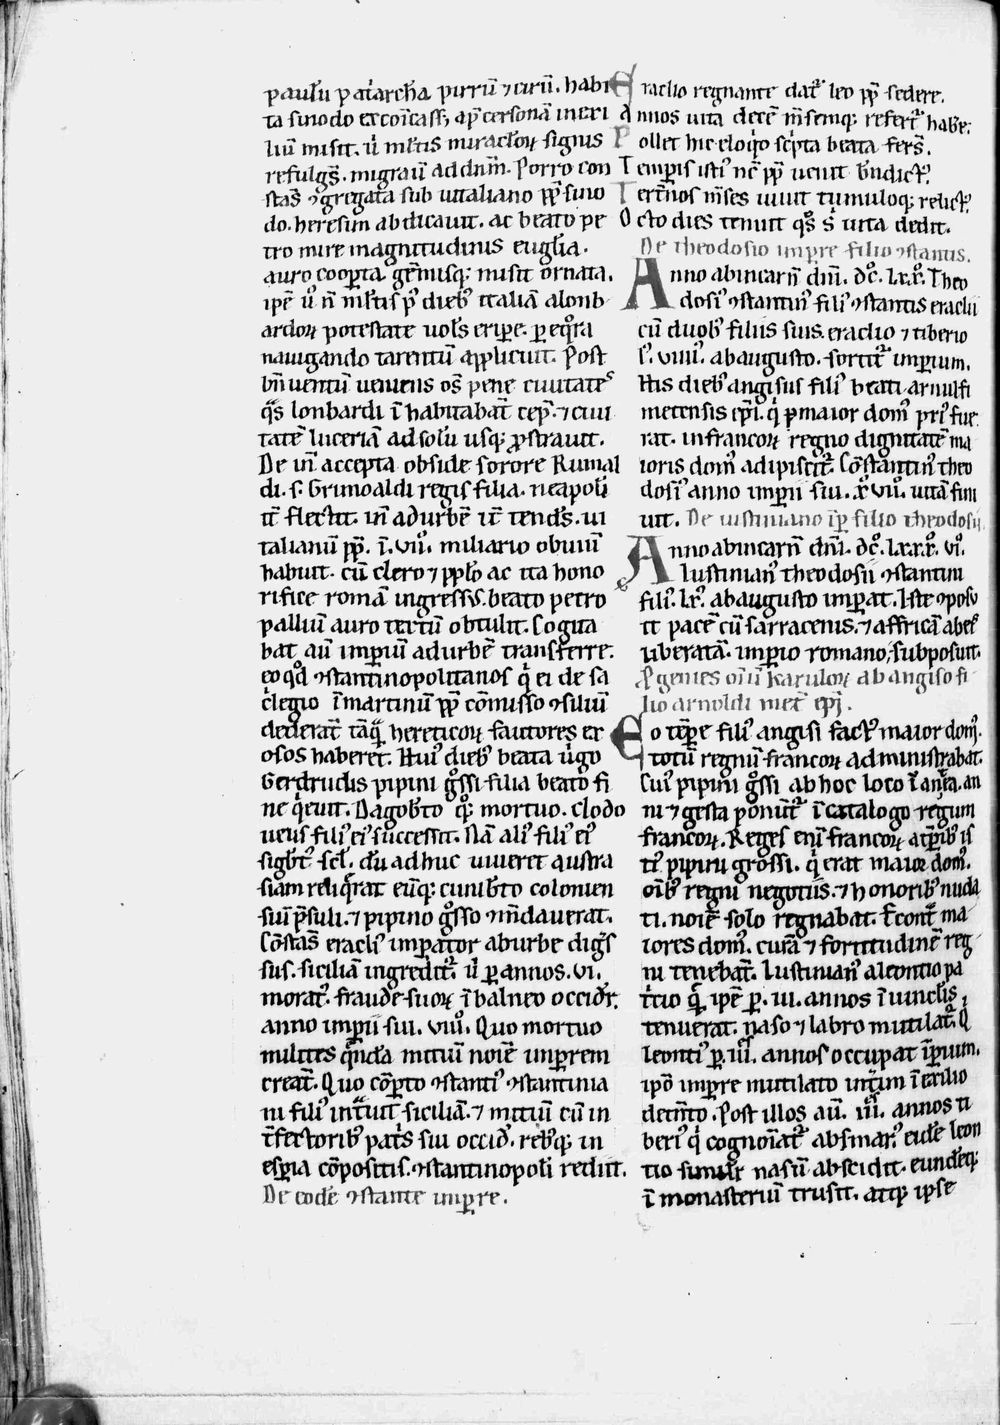 paulū patarcħa pirrū ⁊ cirū. habi
ta sinodo excōicass; ap̄ cersonā inexi
liū misit. ⁊ ml̄tis miraclōꝝ signis
refulgēs. migrauit ad dn̄m. Porro con
stās ꝯgregata sub uitaliano pp̄ sino
do. heresim abdicauit. ac beato pe
tro mire magnitudinis euglīa.
auro cooꝑta gēmisq; misit ornata.
ipē u̾ n̄ ml̄tis p̾ dieb; italiā alonb
ardoꝝ potestate uolēs eriꝑe. ꝑ eqͦra
nauigando tarentū applicuit. Post
bn̄uentū ueniens os̄ pene ciuitates
q̄s lonbardi ī habitabāt cep̄. ⁊ ciui
tatē luceriā ad solū usq; ꝓstrauit.
De in̄ accepta obside sorore Rumal
di. s. Grimoaldi regis filia. neapolī
it̄ flectit. in̄ ad urbē it̄ tendēs. ui
talianū pp̄. ī .vi.ͦ miliario obuiū
habuit. cū clero ⁊ pplō ac ita hono
rifice romā ingressus. beato petro
palliū auro textū obtulit. Cogita
bat aū imꝑiū ad urbē transferre.
eo qd̄ ꝯstantinopolitanos qͥ ei de sa
clegio ī martinū pp̄ cōmisso ꝯsiliū
dederāt tāq̄ hereticoꝝ fautores ex
osos haberet. Hui̾ dieb; beata uͥgo
Gerdrudis pipini gͦssi filia beato fi
ne qͥeuit. Dagobto qͦq; mortuo. clodo
ueus fili̾ ei̾ successit. Nā ali̾ fili̾ ei̾
sigbt̾ scꝉ. dū adhuc uiueret austra
siam reliqͥrat eūq; cunibto colonien
siū p̄suli. ⁊ pipino gͦsso ꝯmdauerat.
Cōstās eracli̾ imꝑator ab urbe digͥs
sus. siciliā ingredit̾. u̾ ꝑ annos .vi.
morat̾. fraude suoꝝ ī balneo occidit̾.
anno imꝑii sui .viii.ͦ Quo mortuo
milites qͥndā mitiū noīe imꝑrem
creāt. Quo cōꝑto ꝯstanti̾ ꝯstantinia
ni fili̾ intͣuit siciliā. ⁊ mitiū cū in
t̄fectorib; patͥs sui occid̾. reb; in
esꝑia cōpositis. ꝯstantinopolī rediit.
De eodē ꝯstante imꝑre.
Eraclio regnante dat̾ leo pp̄ sedere.
Annos uita decē m̄semq; refert̾ habe.
Pollet hic eloqͦ sc̾pta beata fers̄.
Temꝑis isti̾ nc̄ pp̄ uenit bn̄dict̾.
Ternos m̄ses uiuit tumuloq; relict̾.
Octo dies tenuit qͦs s̄ uita dedit.
De theodosio imꝑre filio ꝯstantis.
Anno ab incarn̄ dn̄i. dc̾. lxx̾. Theo
dosi̾ ꝯstantin̾ fili̾ ꝯstantis eraclii
cū duob; filiis suis. eraclio ⁊ tiberio
l̾. viiii̾. ab augusto. sortit̾ imꝑium.
His dieb; angisus fili̾ beati arnulfi
metensis epī. qͥ p maior dom̾ pri̾ fue
rat. in francoꝝ regno dignitatē ma
ioris dom̾ adipiscit̾. Cōstantin̾ theo
dosi̾ anno imꝑii sui .xvii.ͦ uitā fini
uit. De iustiniano iꝑ̄ filio theodosii.
Anno ab incarn̄ dn̄i. dc̾. lxxx̾. vi̾.
Iustinian̾ theodosii ꝯstantini
fili̾. lx̾. ab augusto imꝑat. Iste ꝯposu
it pacē cū sarracenis. ⁊ affricā ab eis
liberatā. imꝑio romano, subposuit.
Progenies oīū karuloꝝ ab angiso fi
lio arnoldi met̄ epī.
Eo tēꝑe fili̾ angisi fact̾ maior dom̾.
totū regnū francoꝝ administrabat.
Cui̾ pipini gͦssi ab hoc loco ī antea. an
ni ⁊ gesta ponūt̾ ī catalogo regum
francoꝝ. Reges eni̾ francoꝝ a tꝑib; is
ti̾ pipini grossi. qͥ erat maior dom̾.
oīb; regni negotiis. ⁊ honorib; nuda
ti. noīe solo regnabāt. Econt̄ ma
iores dom̾. curā ⁊ fortitudinē reg
ni tenebāt. Iustinian̾ a leontio pa
tͥcio qͥ ipē ꝑ .iii. annos ī uinclis
tenuerat. naso ⁊ labro mutilat̾. Q
Leonti̾ ꝑ .iii̾. annos occupat iꝑ̄ium.
ipō imꝑre mutilato int̾im ī exilio
detēto. Post illos aū .iii̾. annos ti
beri̾ qͥ cognoīat̾ absmar̾. eūdē leon
tio similit̾ nasū abscidit. eundēq;
ī monasteriū trusit. atq; ipse